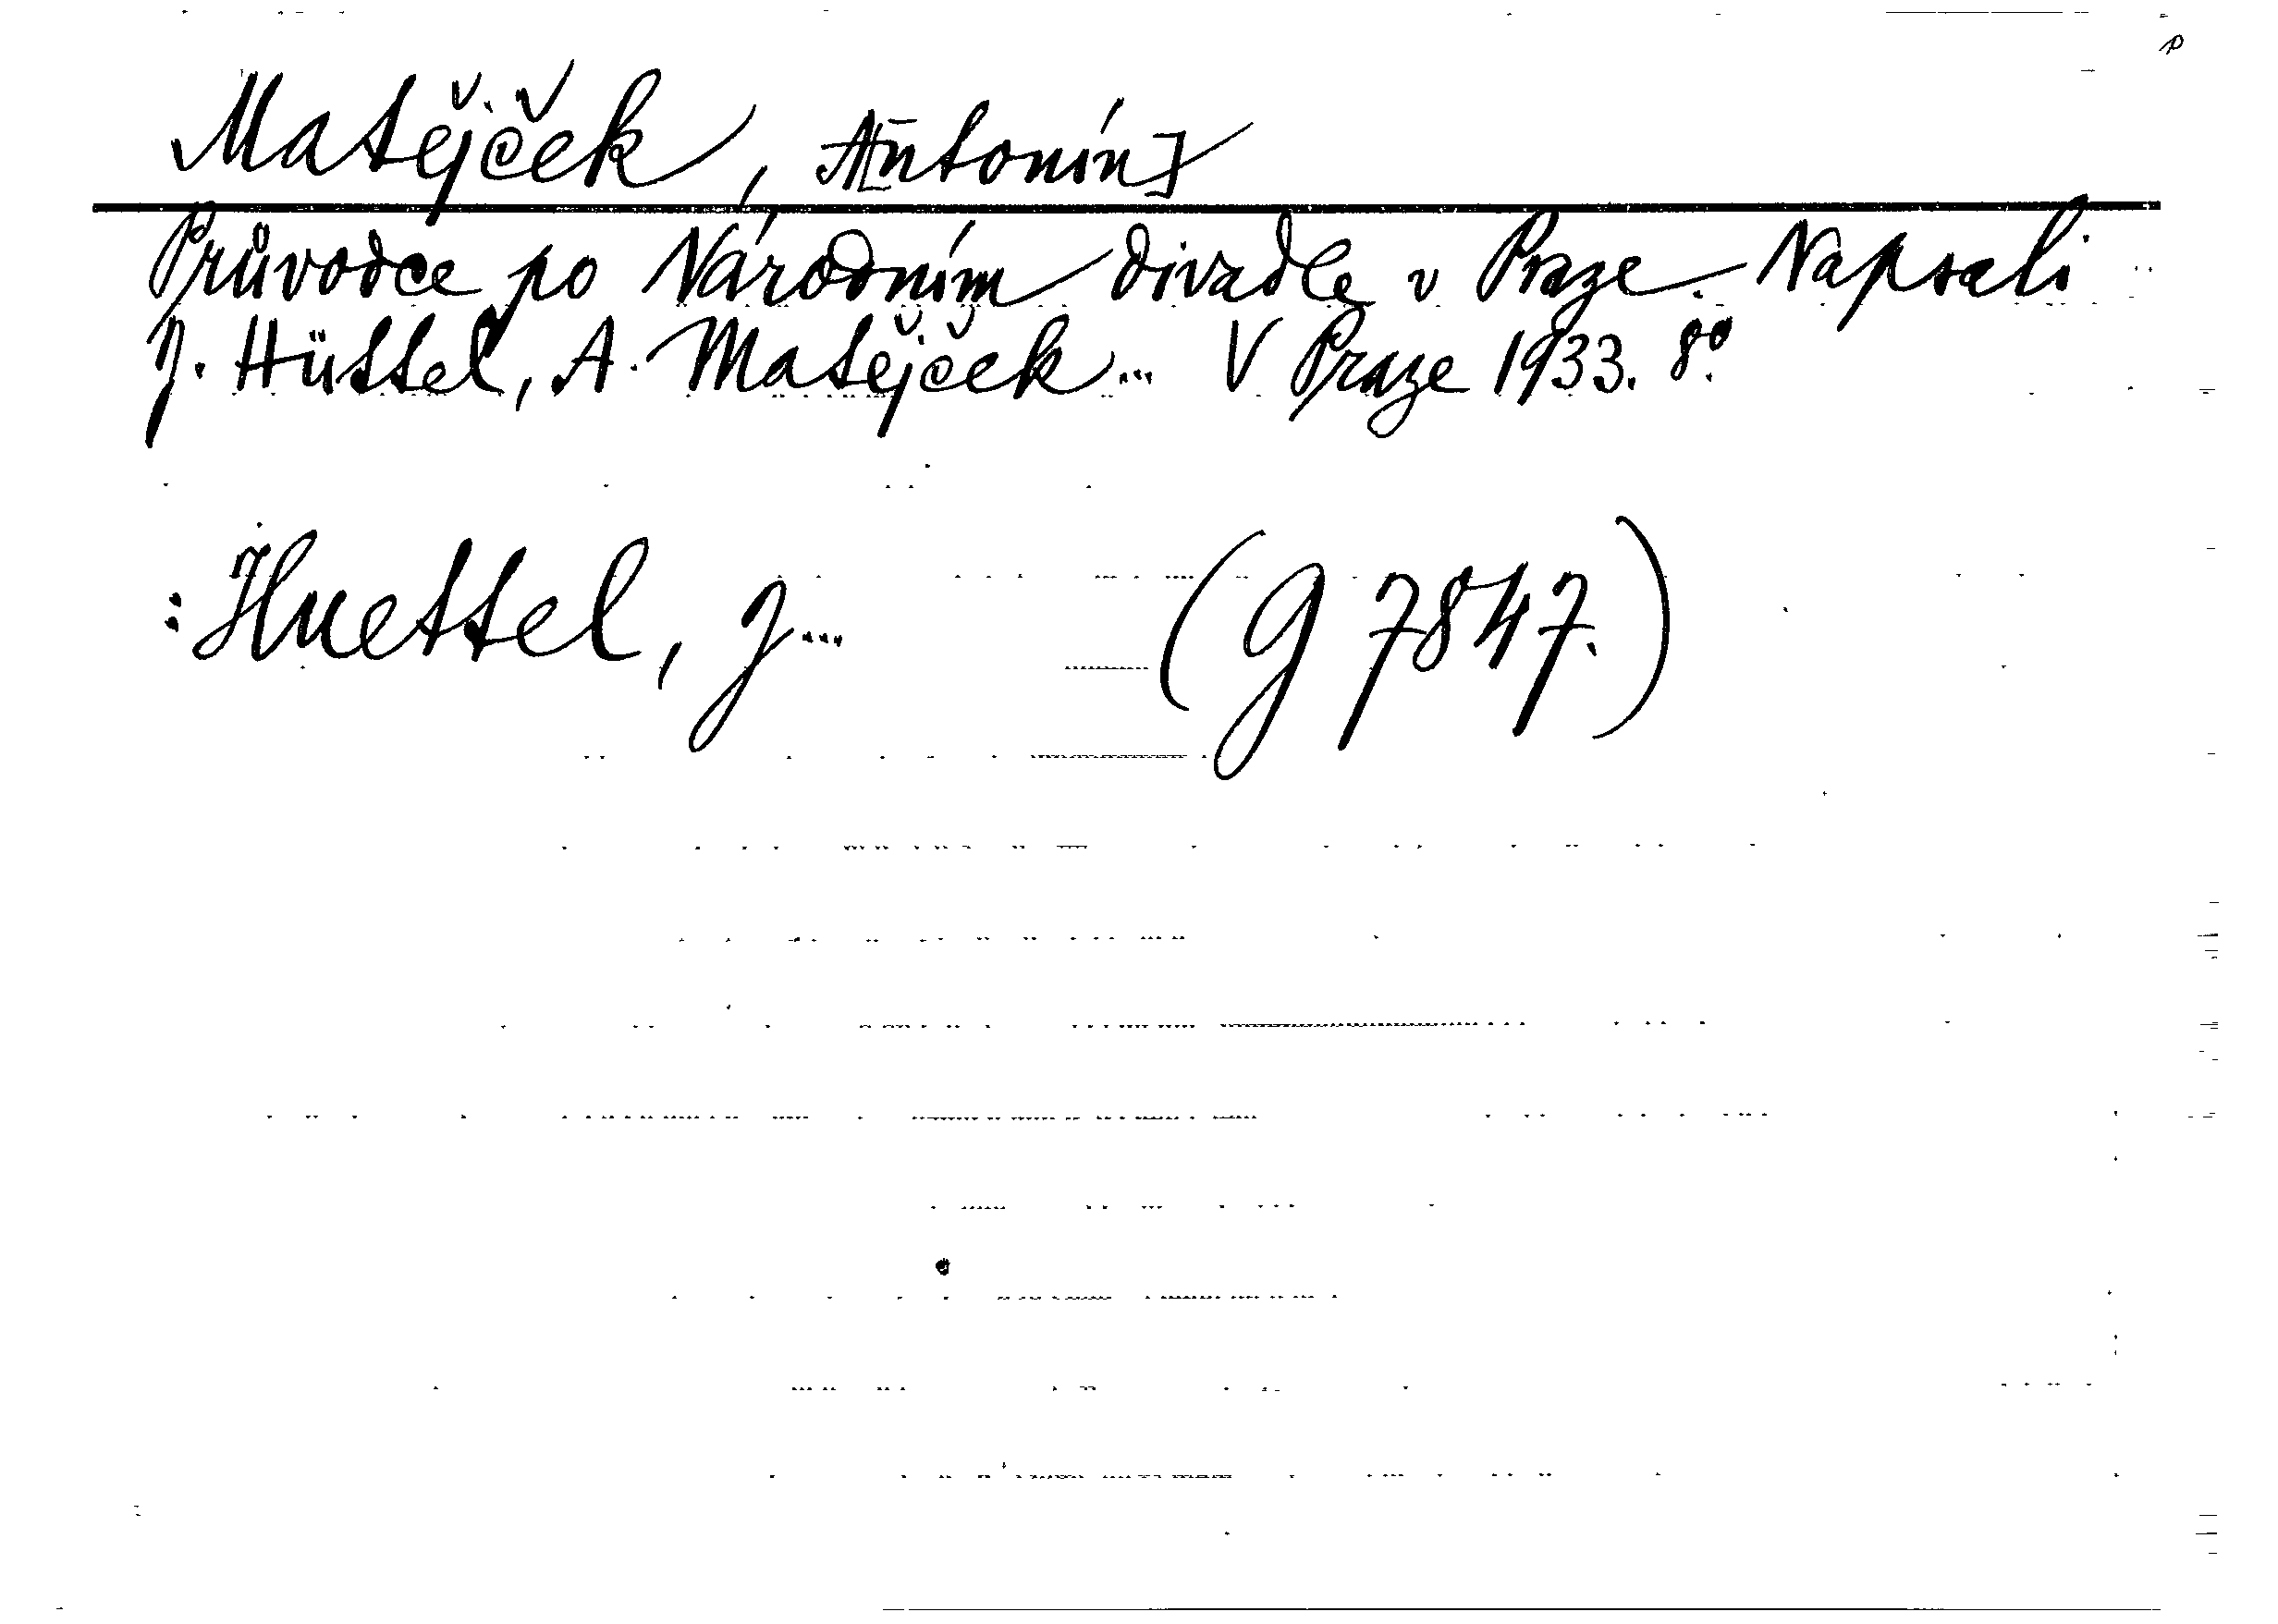 p
Matějček, A[ntonín]
Průvodce po Národním divadle v Praze. Napsali
J. Hüttel, A. Matějček... V Praze 1933. 8°.
: Huettel, J... (G 7847.)